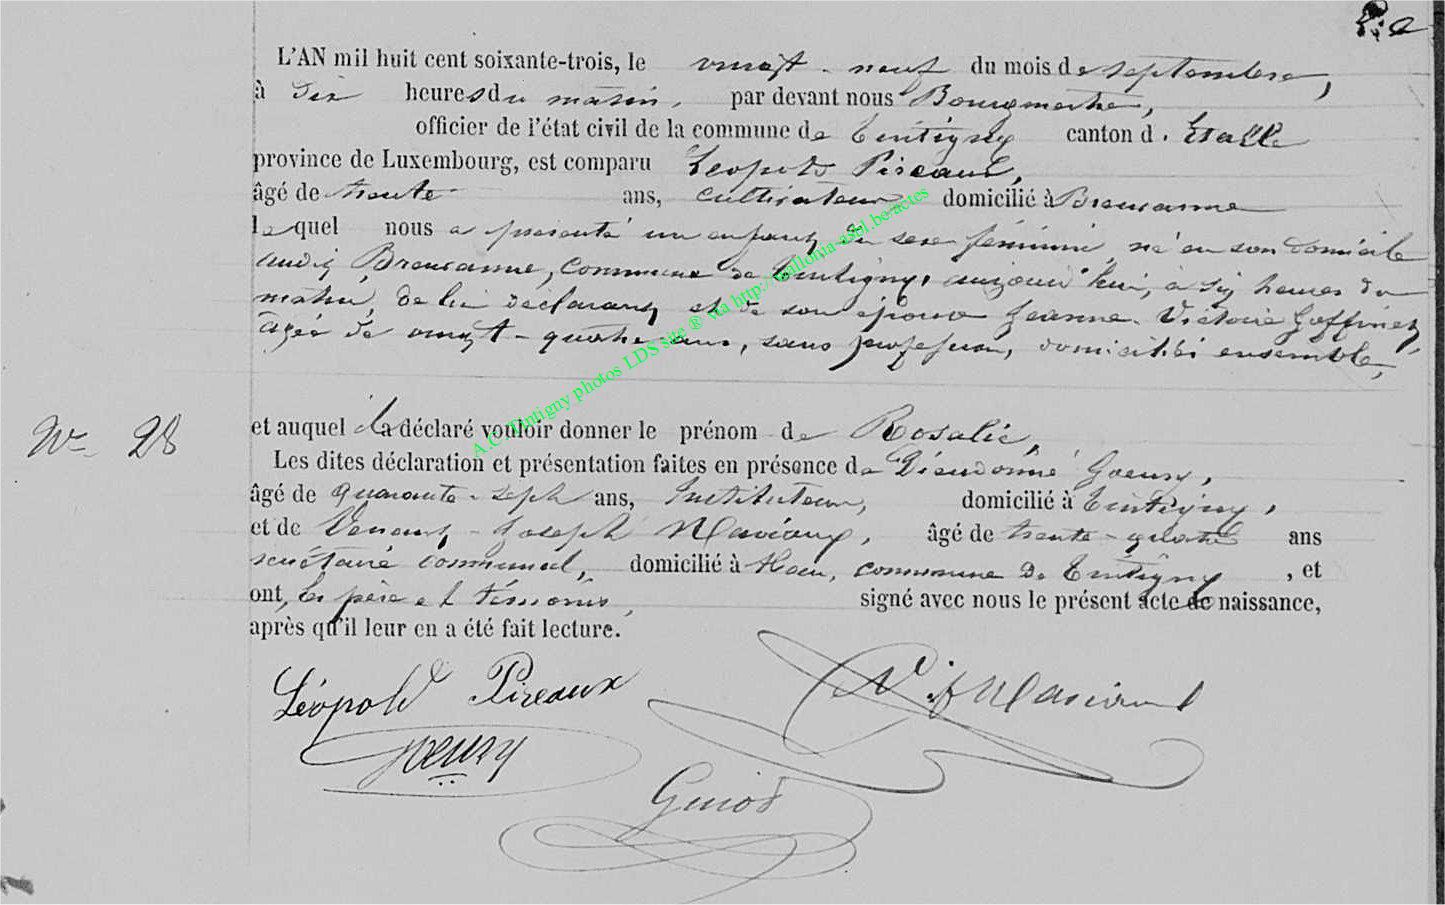 L'AN mil huit cent soixante-trois, le vingt-neuf du mois de septembre,
à dix heures du matin, par devant nous Bourgmestre,
officier de l'état civil de la commune de Tintigny canton d. Etalle
province de Luxembourg, est comparu Léopold Pireaux,
âgé de trente ans, cultivateur domicilié à Breuvanne
lequel nous a présenté un enfant du sexe féminin, né en son domicile
audit Breuvanne, commune de Tintigny, aujourd'hui, à six heures du
matin, de lui déclarant et de son épouse Jeanne-Victoire Goffinet,
âgée de vingt-quatre ans, sans profession, domiciliés ensemble,
N° 28
et auquel il a déclaré vouloir donner le prénom de Rosalie,
Les dites déclaration et présentation faites en présence de Dieudonné Goeury,
âgé de quarante-sept ans, Instituteur, domicilié à Tintigny,
et de Venant-Joseph Maviaux, âgé de trente-quatre ans
secrétaire communal, domicilié à Han, commune de Tintigny, et
ont, les père et témoins, signé avec nous le présent acte de naissance,
après qu'il leur en a été fait lecture.
Léopold Pireaux
Goeury
Guiot
A.C. Tintigny photos LDS site ® via http://wallonia-asbl.be/actes